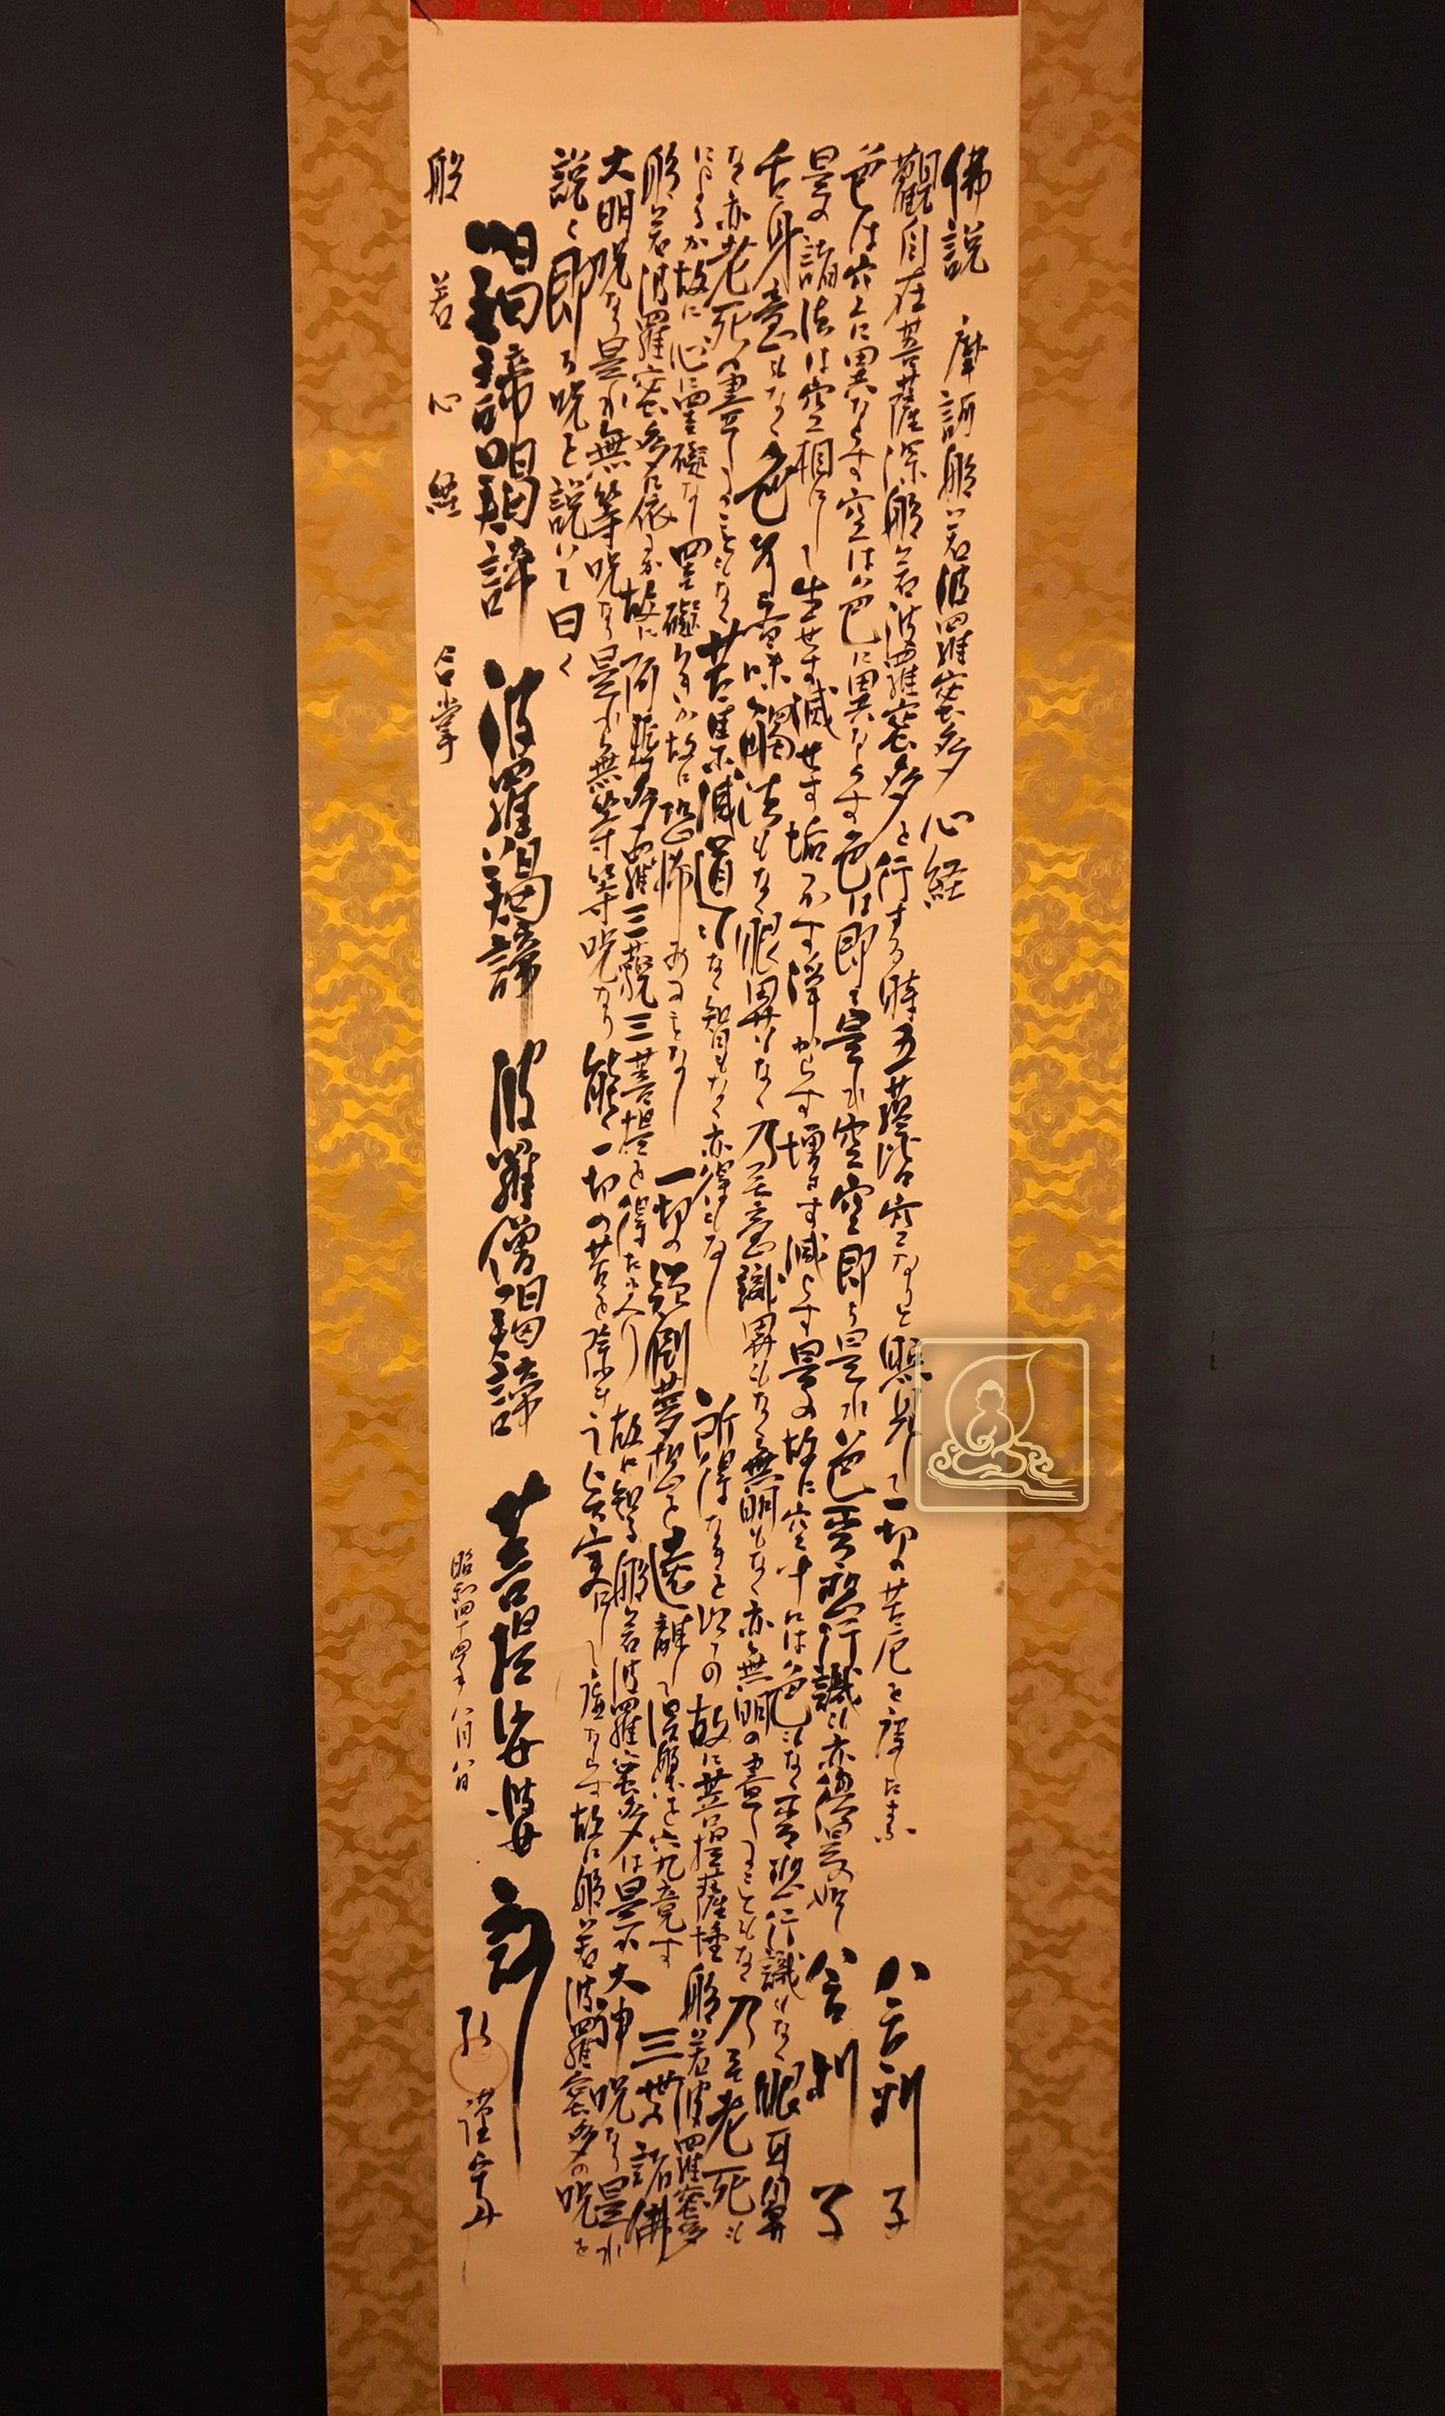 佛説 摩訶般若波羅蜜多 心経
観自在菩薩深般若波羅蜜多を行する時五蘊皆空なりと照見して一切の苦厄を度したまふ 舎利子
色は空に異ならす空は色に異ならす色は即ち是れ空空即ち是れ色受想行識も亦復是の如し 舎利子
是の諸法は空相にして生せす滅せす垢れす浄からす増さす減らす是の故に空中には色もなく受想行識もなく眼耳鼻
舌身意もなく色声香味触法もなく眼界もなく乃至意識界もなく無明もなく亦無明の盡くることもなく乃至老死も
なく亦老死の盡くることもなく苦集滅道もなく智もなく亦得もなし 所得なきを以ての故に菩提薩埵 般若波羅蜜多
によるか故に心に罣礙なし 罣礙なきか故に恐怖あることなし 一切の顛倒夢想を遠離して涅槃を究竟す 三世の諸佛
般若波羅蜜多に依るか故に 阿耨多羅三藐三菩提を得たまへり 故に知る般若波羅蜜多は是れ大神呪なり是れ
大明呪なり是れ無等呪なり是れ無等等呪なり 能く一切の苦を除き 真実にして虚ならす故に般若波羅蜜多の呪を
説く即ち呪を説いて曰く
羯諦羯諦 波羅羯諦 波羅僧羯諦 菩提娑婆訶
般若心経 合掌
昭和四十四年八月八日
謹書